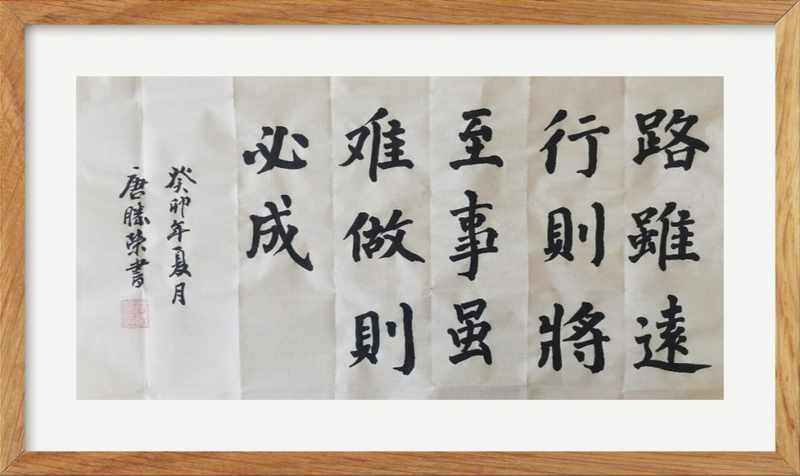 路雖遠
行則將
至事虽
难做則
必成
癸卯年夏月
唐勝荣書